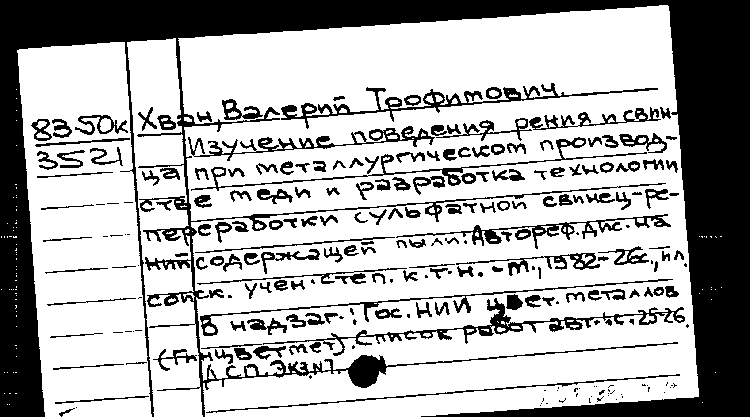 83-50к
3521
Хван, Валерий Трофимович.
Изучение поведения рения и свин-
ца при металлургическом производ-
стве меди и разработка технологии
переработки сульфатной свинец-ре-
нийсодержащей пыли: Автореф. дис. на
соиск. учен. степ. к.т.н. - М., 1982-26с., ил.
В надзаг.: Гос. НИИ цвет. металлов
(Гинцветмет). Список работ авт.: с. 25-26.
Д.С.П. Экз. N7.